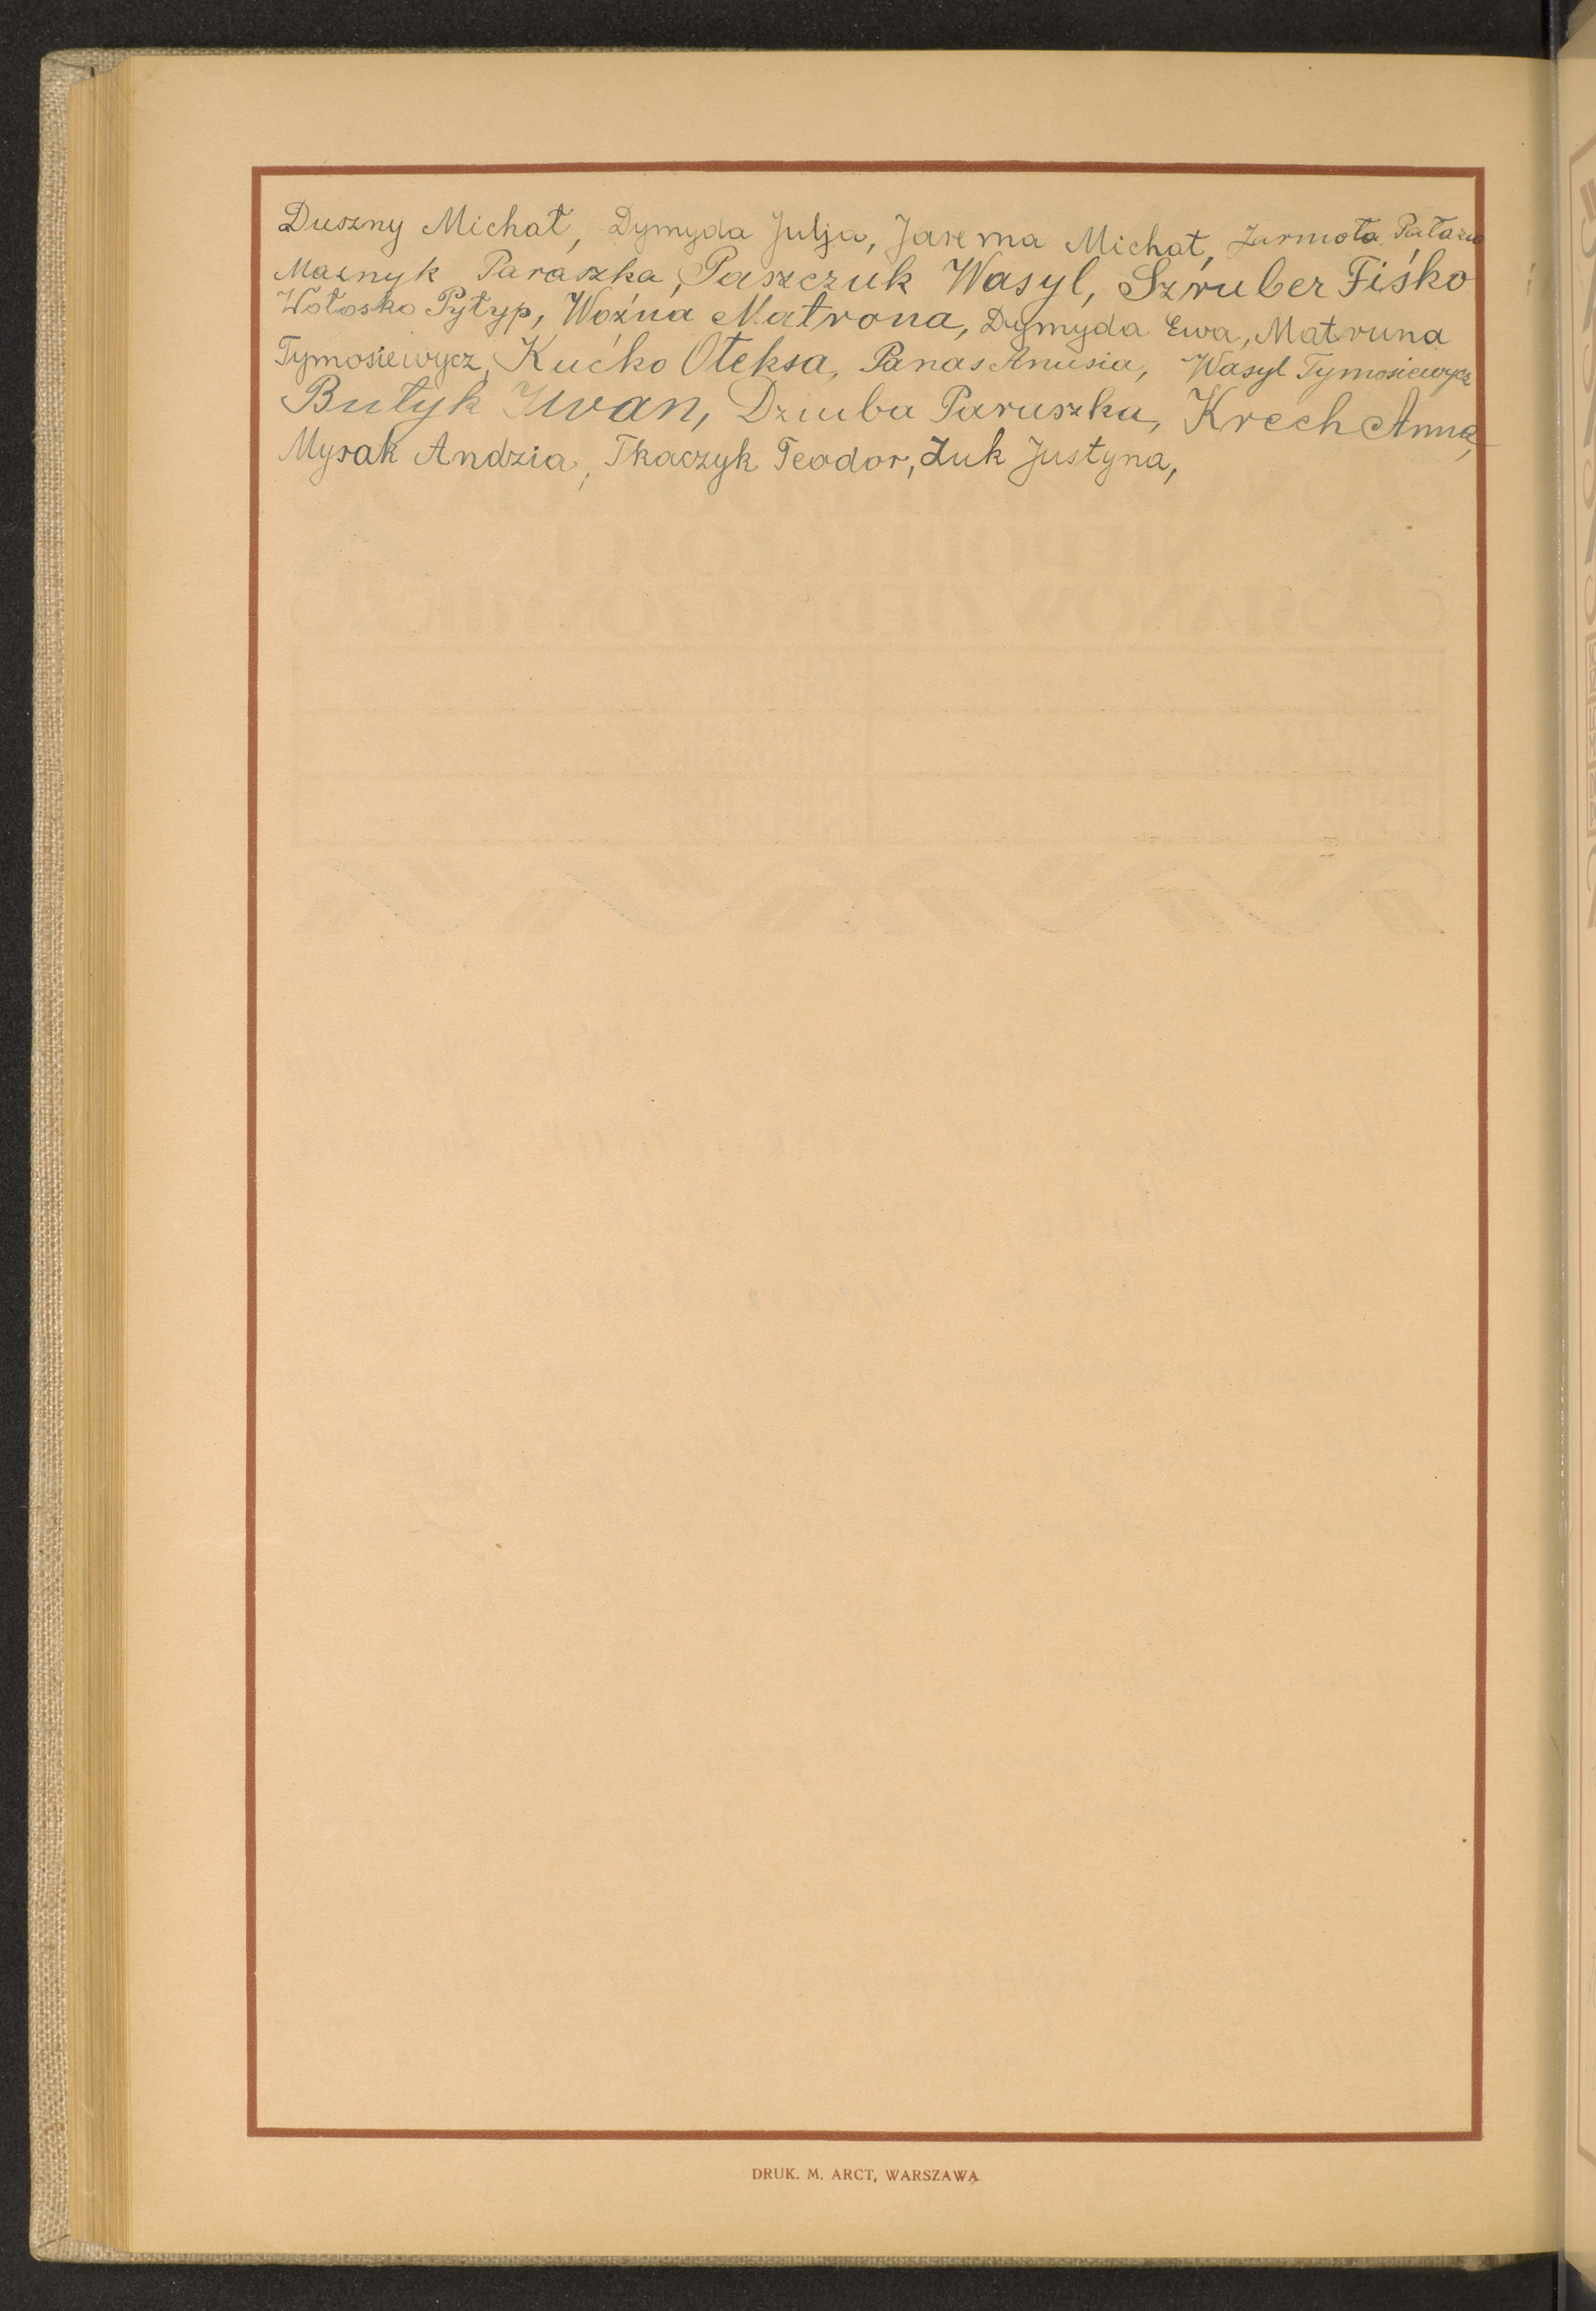 Duszny Michał, Dymyda Julja, Jarema Michał, Jarmoła Pałazia
Maznyk Paraszka, Paszczuk Wasyl, Szruber Fiśko
Wołosko Pyłyp, Woźna Matrona, Dymyda Ewa, Matruna
Tymosiewycz, Kućko Ołeksa, Panas Anusia, Wasyl Tymosiewycz
Butyk Iwan, Dziuba Paruszka, Krech Anna,
Mysak Andzia, Tkaczyk Teodor, Żuk Justyna,
DRUK. M. ARCT, WARSZAWA